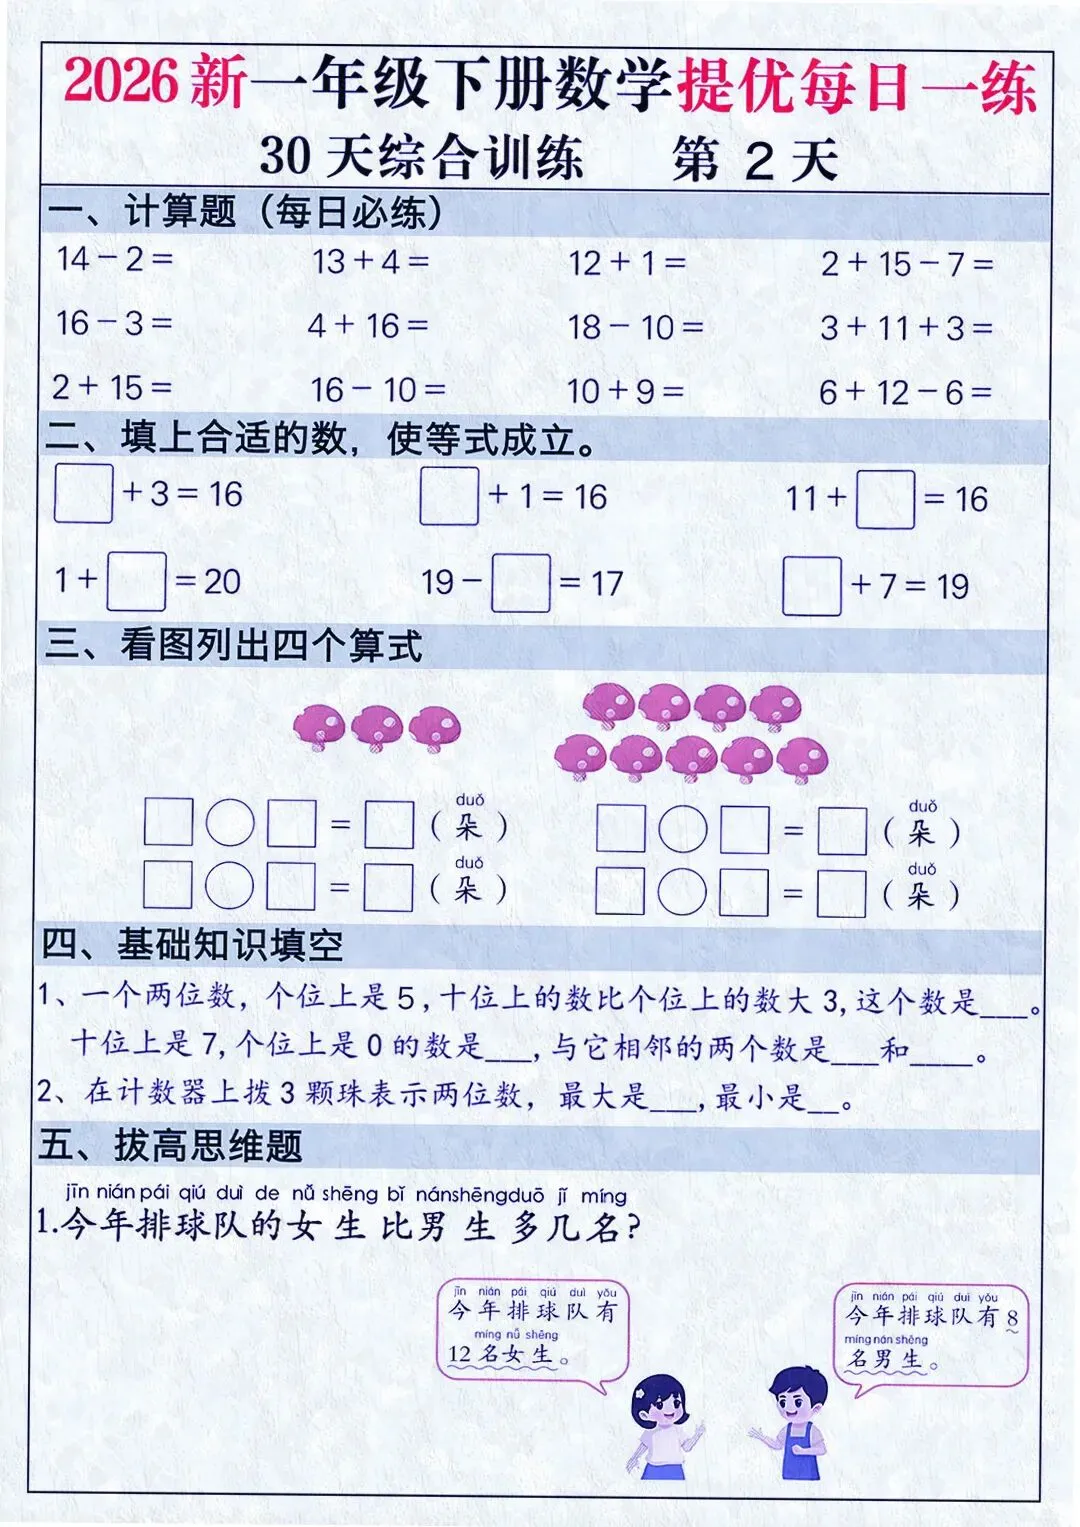 2026新一年级下册数学提优每日一练
30天综合训练 第 2 天
一、计算题（每日必练）
14－2＝ 13＋4＝ 12＋1＝ 2＋15－7＝
16－3＝ 4＋16＝ 18－10＝ 3＋11＋3＝
2＋15＝ 16－10＝ 10＋9＝ 6＋12－6＝
二、填上合适的数，使等式成立。
□＋3＝16 □＋1＝16 11＋□＝16
1＋□＝20 19－□＝17 □＋7＝19
三、看图列出四个算式
duǒ duǒ
□○□＝□（朵） □○□＝□（朵）
duǒ duǒ
□○□＝□（朵） □○□＝□（朵）
四、基础知识填空
1、一个两位数，个位上是5,十位上的数比个位上的数大3,这个数是___。
十位上是7,个位上是0的数是___,与它相邻的两个数是___和____。
2、在计数器上拨3颗珠表示两位数，最大是___,最小是__。
五、拔高思维题
jīn nián pái qiú duì de nǚ shēng bǐ nánshēngduō jǐ míng
1.今年排球队的女生比男生多几名?
jīn nián pái qiú duì yǒu
今年排球队有
míng nǚ shēng
12名女生。
jīn nián pái qiú duì yǒu
今年排球队有8
míng nán shēng
名男生。